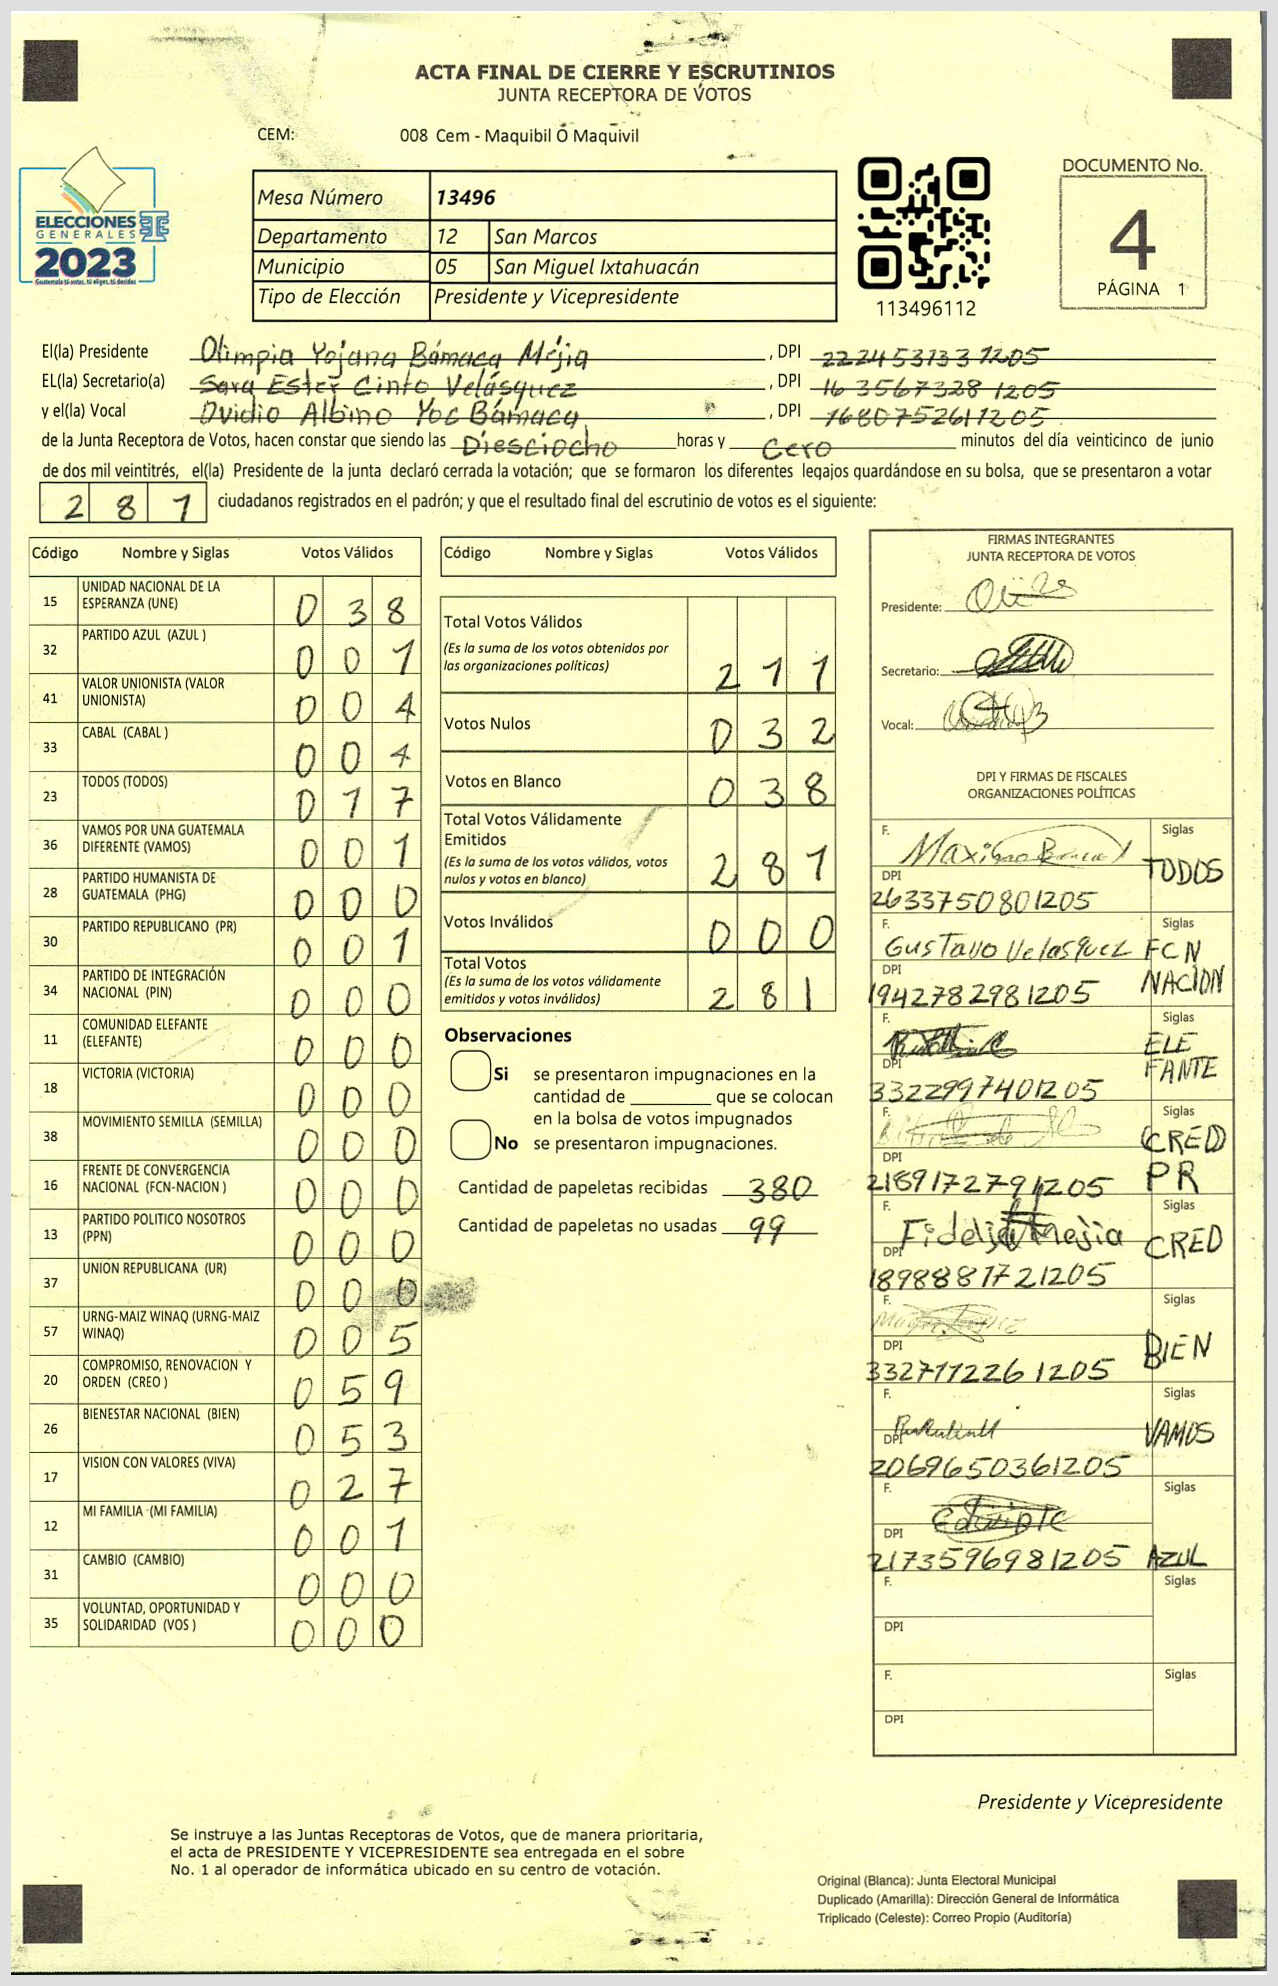 ACTA FINAL DE CIERRE Y ESCRUTINIOS
JUNTA RECEPTORA DE VOTOS
CEM: 008 Cem - Maquibil O Maquivil
ELECCIONES
GENERALES
2023
Guatemala tú votas, tú eliges, tú decides
Mesa Número 13496
Departamento 12 San Marcos
Municipio 05 San Miguel Ixtahuacán
Tipo de Elección Presidente y Vicepresidente
113496112
DOCUMENTO No.
4
PÁGINA 1
El(la) Presidente Olimpia Yojana Bámaca Mejia, DPI 2224531331205
EL(la) Secretario(a) Sara Ester Cinto Velásquez, DPI 1635673281205
y el(la) Vocal Ovidio Albino Yoc Bámaca, DPI 1680752611205
de la Junta Receptora de Votos, hacen constar que siendo las Diesciocho horas y Cero minutos del día veinticinco de junio
de dos mil veintitrés, el(la) Presidente de la junta declaró cerrada la votación; que se formaron los diferentes legajos guardándose en su bolsa, que se presentaron a votar
281 ciudadanos registrados en el padrón; y que el resultado final del escrutinio de votos es el siguiente:
Código Nombre y Siglas Votos Válidos
15 UNIDAD NACIONAL DE LA ESPERANZA (UNE) 038
32 PARTIDO AZUL (AZUL ) 001
41 VALOR UNIONISTA (VALOR UNIONISTA) 004
33 CABAL (CABAL ) 004
23 TODOS (TODOS) 017
36 VAMOS POR UNA GUATEMALA DIFERENTE (VAMOS) 001
28 PARTIDO HUMANISTA DE GUATEMALA (PHG) 000
30 PARTIDO REPUBLICANO (PR) 001
34 PARTIDO DE INTEGRACIÓN NACIONAL (PIN) 000
11 COMUNIDAD ELEFANTE (ELEFANTE) 000
18 VICTORIA (VICTORIA) 000
38 MOVIMIENTO SEMILLA (SEMILLA) 000
16 FRENTE DE CONVERGENCIA NACIONAL (FCN-NACION ) 000
13 PARTIDO POLITICO NOSOTROS (PPN) 000
37 UNION REPUBLICANA (UR) 000
57 URNG-MAIZ WINAQ (URNG-MAIZ WINAQ) 005
20 COMPROMISO, RENOVACION Y ORDEN (CREO ) 059
26 BIENESTAR NACIONAL (BIEN) 053
17 VISION CON VALORES (VIVA) 027
12 MI FAMILIA (MI FAMILIA) 001
31 CAMBIO (CAMBIO) 000
35 VOLUNTAD, OPORTUNIDAD Y SOLIDARIDAD (VOS ) 000
Código Nombre y Siglas Votos Válidos
Total Votos Válidos
(Es la suma de los votos obtenidos por
las organizaciones políticas) 211
Votos Nulos 032
Votos en Blanco 038
Total Votos Válidamente
Emitidos
(Es la suma de los votos válidos, votos
nulos y votos en blanco) 281
Votos Inválidos 000
Total Votos
(Es la suma de los votos válidamente
emitidos y votos inválidos) 281
Observaciones
Si se presentaron impugnaciones en la
cantidad de ________ que se colocan
en la bolsa de votos impugnados
No se presentaron impugnaciones.
Cantidad de papeletas recibidas 380
Cantidad de papeletas no usadas 99
FIRMAS INTEGRANTES
JUNTA RECEPTORA DE VOTOS
Presidente:
Secretario:
Vocal:
DPI Y FIRMAS DE FISCALES
ORGANIZACIONES POLÍTICAS
F. Siglas
TODOS
DPI
2633750801205
F. Gustavo Velasquez Siglas
FCN
NACION
DPI
1942782981205
F. Siglas
ELE
FANTE
DPI
3322997401205
F. Siglas
CREO
PR
DPI
2189172791205
F. Fidelia Mejia Siglas
CREO
DPI
1898881721205
F. Siglas
BIEN
DPI
3327112261205
F. Siglas
VAMOS
DPI
2069650361205
F. Siglas
DPI
2173596981205 AZUL
F. Siglas
DPI
F. Siglas
DPI
Presidente y Vicepresidente
Se instruye a las Juntas Receptoras de Votos, que de manera prioritaria,
el acta de PRESIDENTE Y VICEPRESIDENTE sea entregada en el sobre
No. 1 al operador de informática ubicado en su centro de votación.
Original (Blanca): Junta Electoral Municipal
Duplicado (Amarilla): Dirección General de Informática
Triplicado (Celeste): Correo Propio (Auditoría)